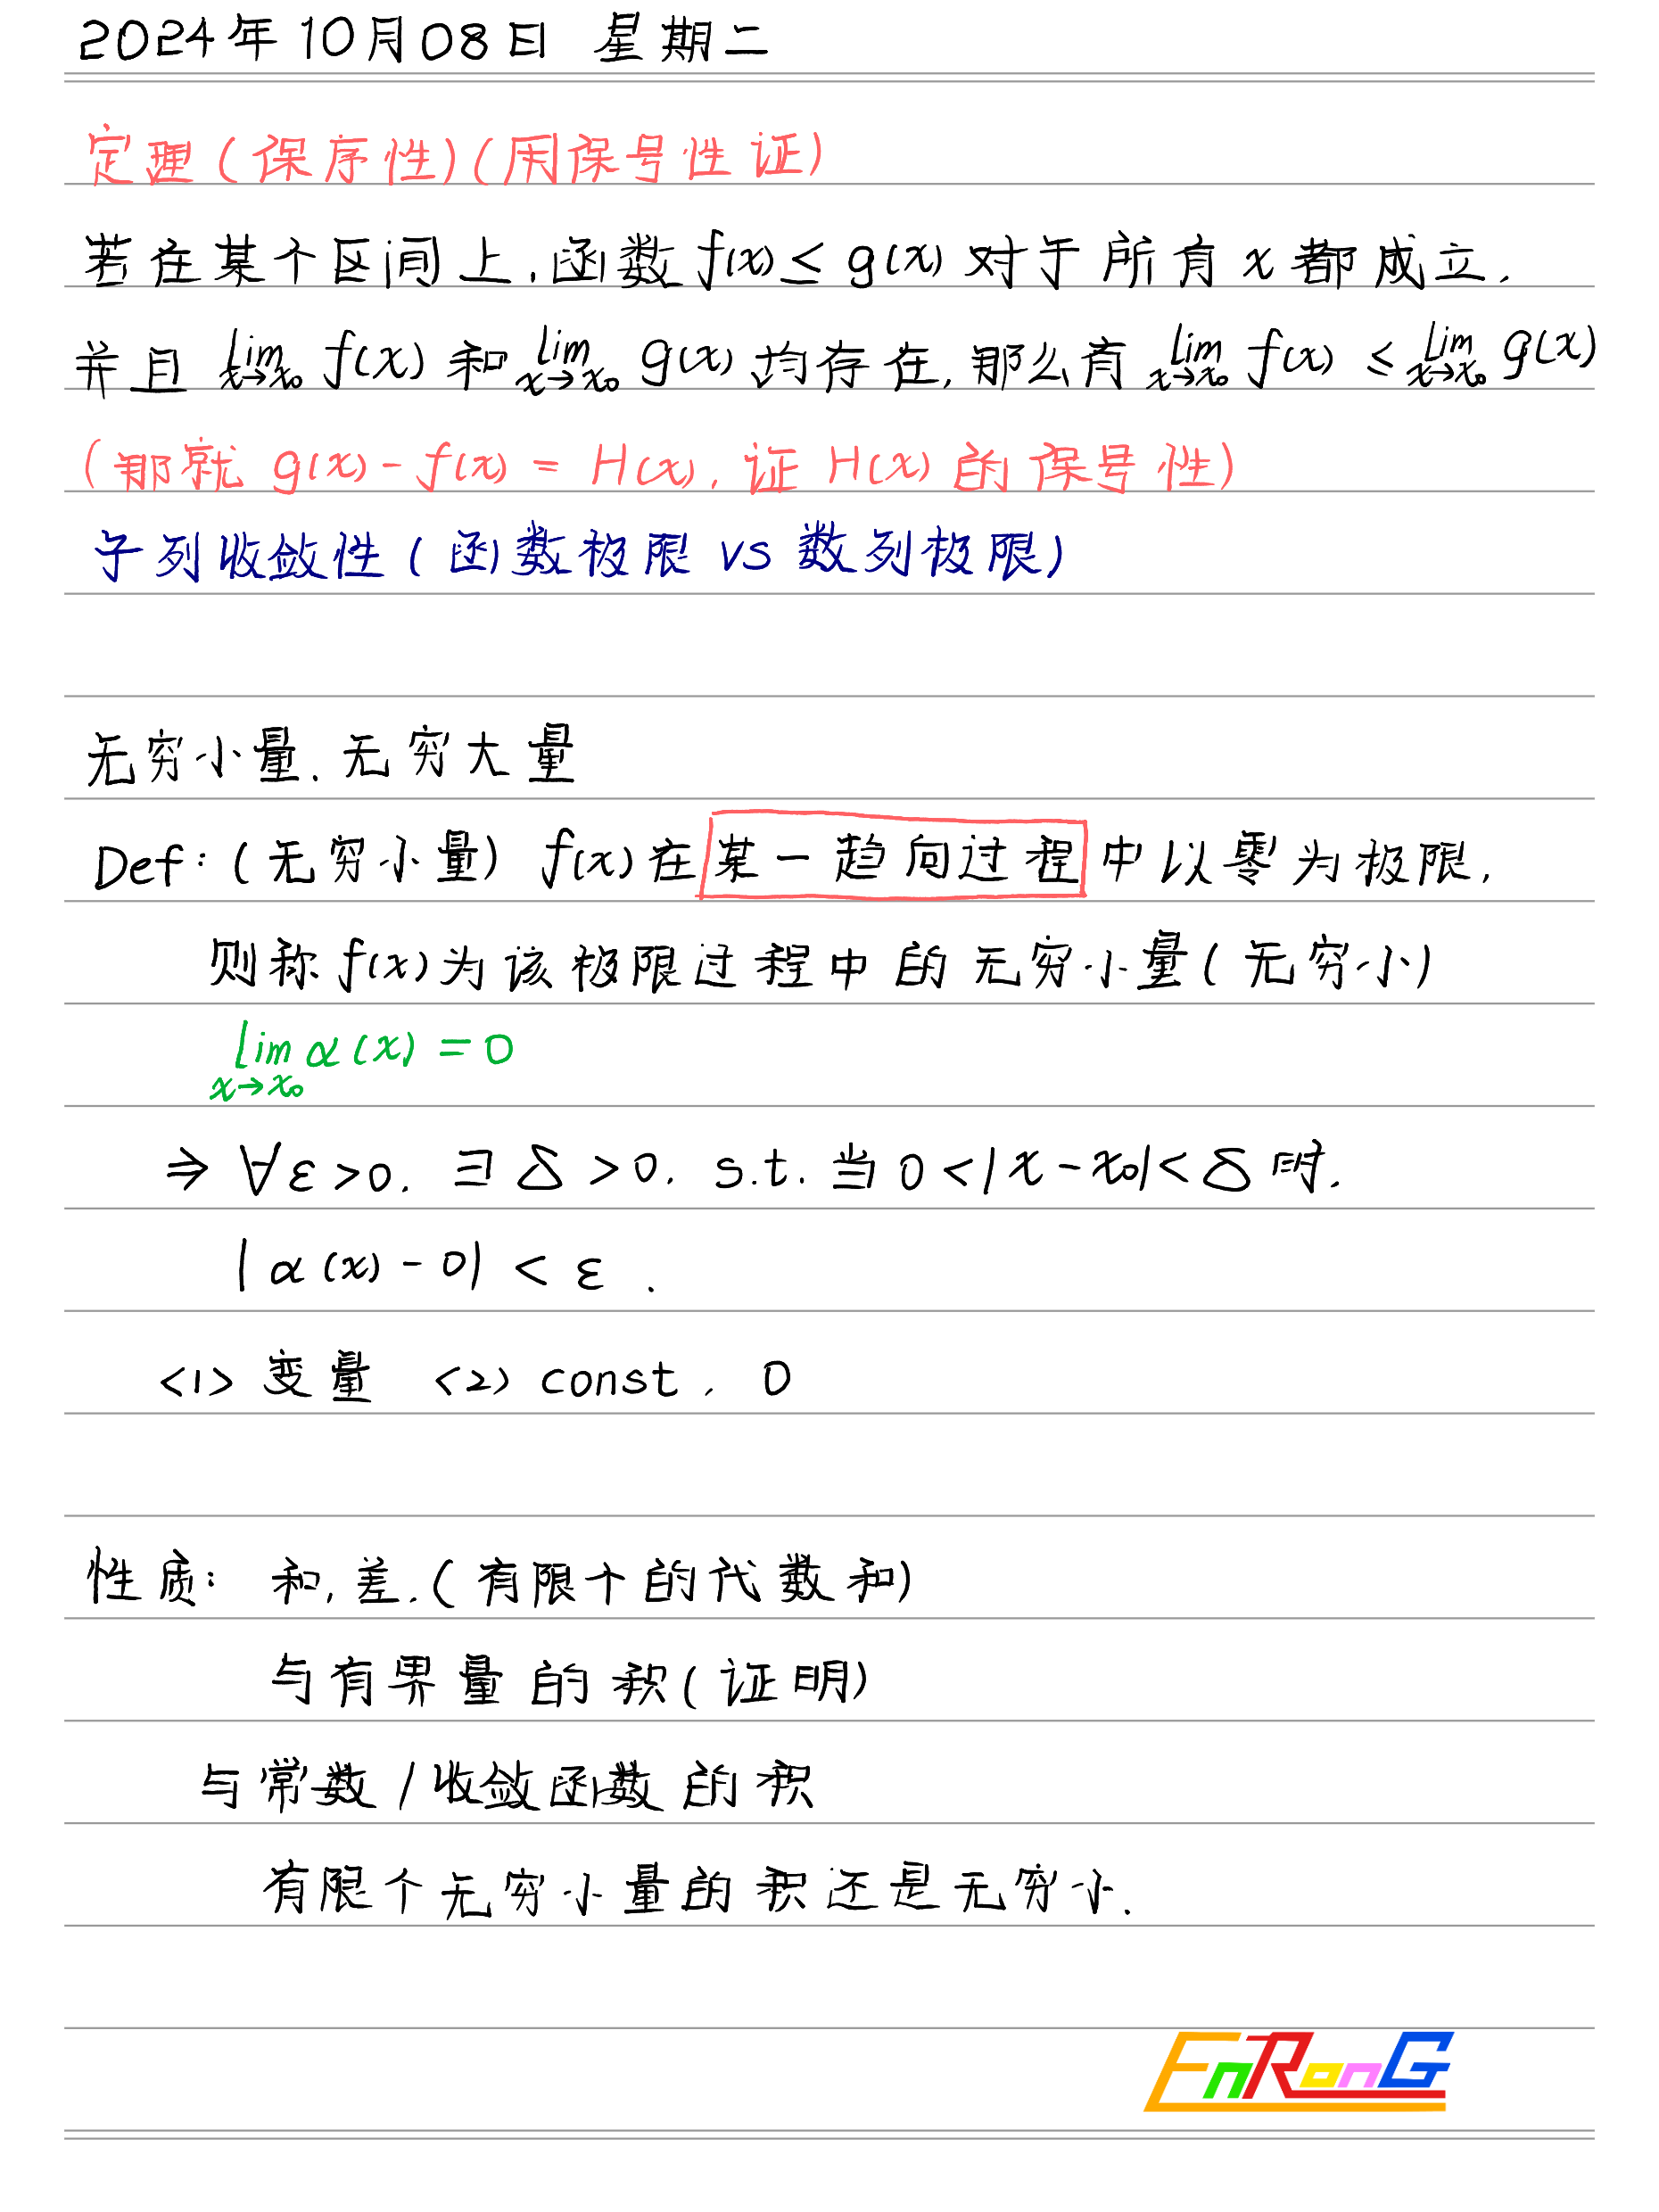 2024年10月08日 星期二
定理(保序性)(用保号性证)
若在某个区间上,函数f(x)≤g(x)对于所有x都成立.
并且 lim x→x₀ f(x) 和 lim x→x₀ g(x) 均存在,那么有 lim x→x₀ f(x) ≤ lim x→x₀ g(x)
(那就 g(x)-f(x)=H(x),证H(x)的保号性)
子列收敛性(函数极限 vs 数列极限)
无穷小量.无穷大量
Def:(无穷小量) f(x)在某一趋向过程中以零为极限,
则称f(x)为该极限过程中的无穷小量(无穷小)
lim x→x₀ α(x)=0
⇒ ∀ε>0. ∃δ>0. s.t. 当0<|x-x₀|<δ时.
|α(x)-0|<ε.
<1>变量 <2>const. 0
性质: 和,差.(有限个的代数和)
与有界量的积(证明)
与常数/收敛函数的积
有限个无穷小量的积还是无穷小.
EnRonG